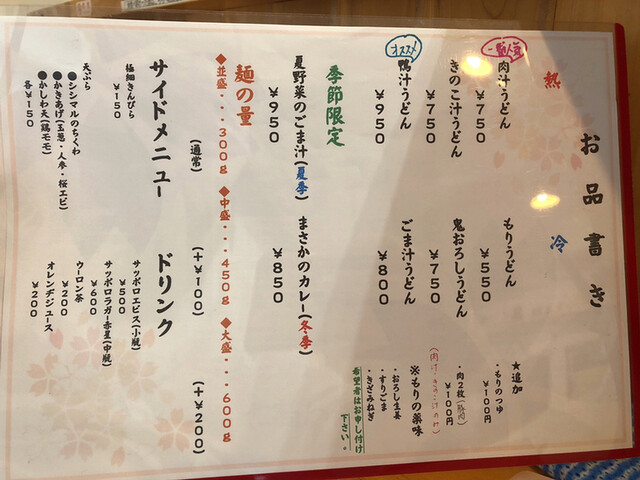 お品書き
熱
一番人気
肉汁うどん
￥７５０
きのこ汁うどん
￥７５０
オススメ
鴨汁うどん
￥９５０
冷
もりうどん
￥５５０
鬼おろしうどん
￥７５０
ごま汁うどん
￥８００
★追加
・もりのつゆ
￥１００円
・肉２枚(豚肉)
￥１００円
(肉汁・きのこ汁のみ)
※もりの薬味
・おろし生姜
・すりごま
・きざみねぎ
希望者はお申し付け
下さい。
季節限定
夏野菜のごま汁(夏季)
￥９５０
まさかのカレー(冬季)
￥８５０
麺の量
◆並盛・・・３００g ◆中盛・・・４５０g ◆大盛・・・６００g
(通常) (＋￥１００) (＋￥２００)
サイドメニュー
極細きんぴら
￥１５０
天ぷら
●シシマルのちくわ
●かきあげ(玉葱・人参・桜エビ)
●かしわ天(鶏モモ)
各￥１５０
ドリンク
サッポロエビス(小瓶)
￥５００
サッポロラガー赤星(中瓶)
￥６００
ウーロン茶
￥２００
オレンヂジュース
￥２００